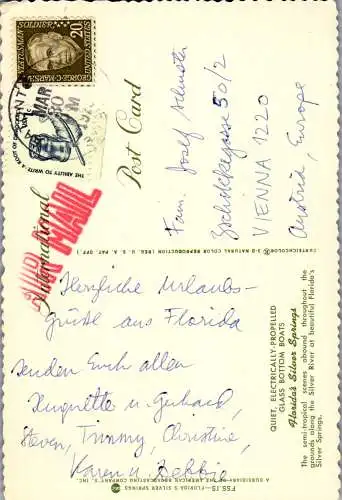 QUIET, ELECTRICALLY-PROPELLED
GLASS BOTTOM BOATS
Florida's Silver Springs
The semi-tropical scenes abound throughout the
grounds along the Silver River at beautiful Florida's
Silver Springs.
Herzliche Urlaubs-
grüße aus Florida
senden Euch allen
Huguette u. Gerhard,
Steven, Timmy, Christine,
Karen u. Debbie
FSS 15 -FLORIDA'S SILVER SPRINGS
A SUBSIDIARY OF THE AMERICAN BROADCASTING COMPANY'S, INC.
CURTEICHCOLOR® 3-D NATURAL COLOR REPRODUCTION (REG. U. S. A. PAT. OFF.)
Post Card
International
AIR MAIL
STATESMAN SOLDIER
GEORGE C. MARSHALL
UNITED STATES
20c
THE ABILITY TO WRITE · A ROOT OF DEMOCRACY
MAR
Fam. Josef Schuster
Zschokkegasse 50/2
VIENNA 1220
Austria, Europe